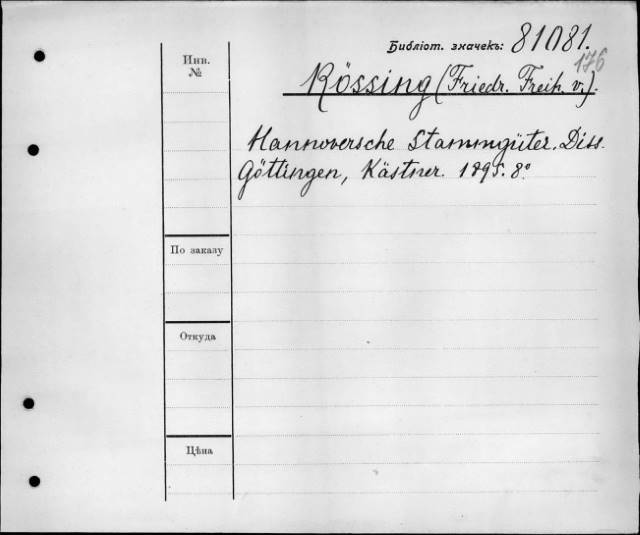 Библіот. значекъ: 81081.
176
Инв.
№
Rössing (Friedr. Freih. v.).
Hannoversche Stammgüter. Diss.
Göttingen, Kästner. 1895. 8°
По заказу
Откуда
Цѣна